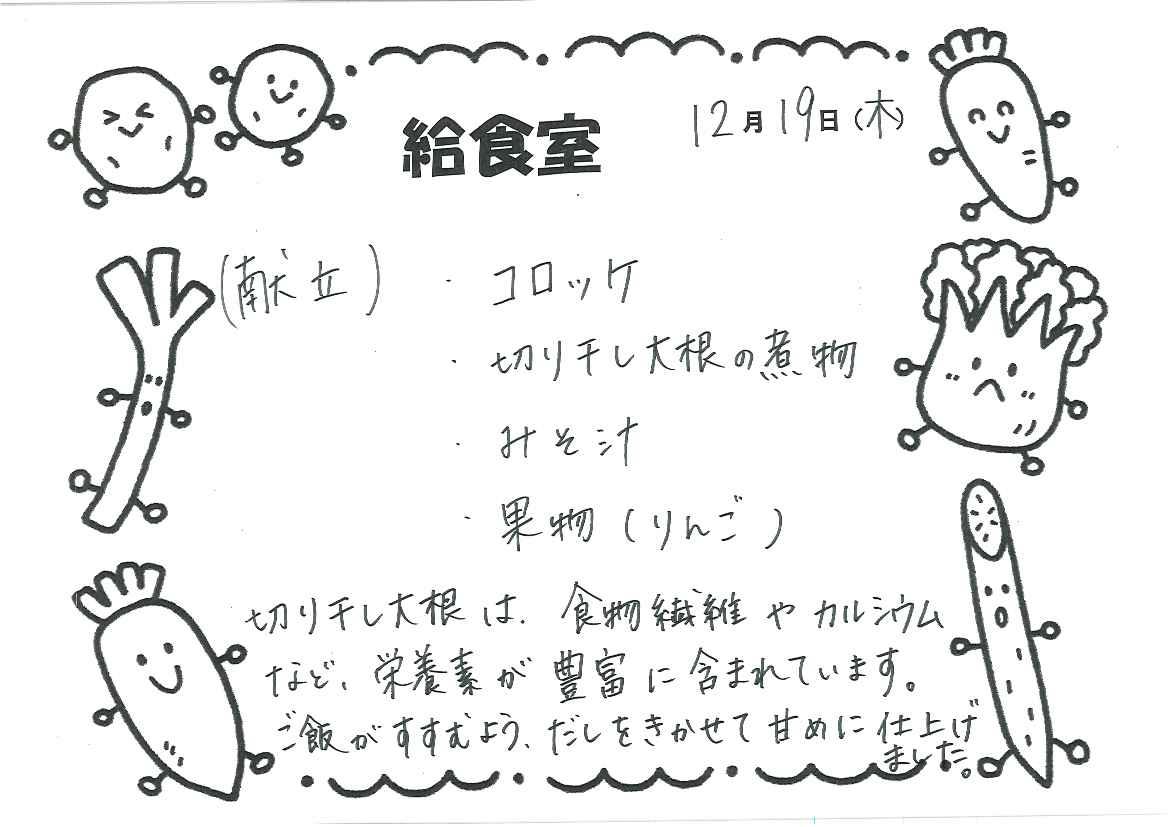 給食室 12月19日(木)
(献立) ・ コロッケ
・ 切り干し大根の煮物
・ みそ汁
・ 果物(りんご)
切り干し大根は、食物繊維やカルシウム
など、栄養素が豊富に含まれています。
ご飯がすすむよう、だしをきかせて甘めに仕上げ
ました。